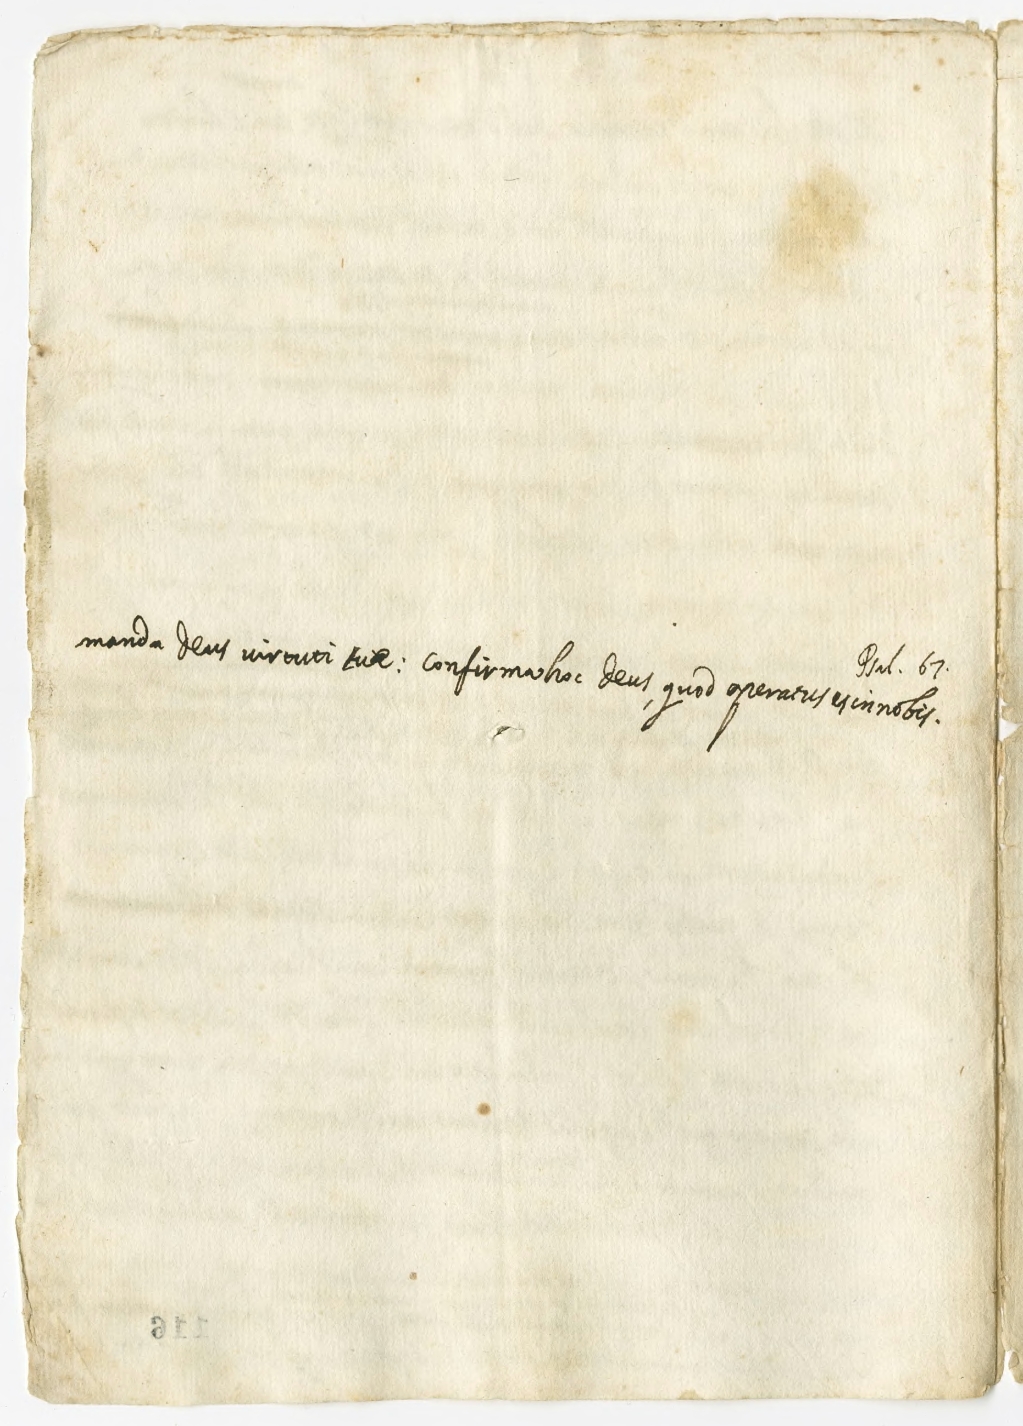 manda deus virtuti tuæ: confirma hoc deus, quod operatus es in nobis.
Psal. 67.
116